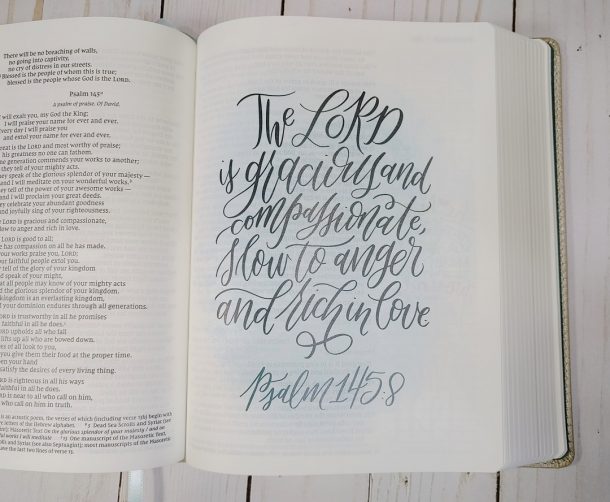 There will be no breaching of walls,
no going into captivity,
no cry of distress in our streets.
Blessed is the people of whom this is true;
blessed is the people whose God is the LORD.
Psalm 145
A psalm of praise. Of David.
will exalt you, my God the King;
I will praise your name for ever and ever.
very day I will praise you
and extol your name for ever and ever.
eat is the LORD and most worthy of praise;
his greatness no one can fathom.
ne generation commends your works to another;
they tell of your mighty acts.
ey speak of the glorious splendour of your majesty —
and I will meditate on your wonderful works.
ey tell of the power of your awesome works —
and I will proclaim your great deeds.
ey celebrate your abundant goodness
and joyfully sing of your righteousness.
LORD is gracious and compassionate,
low to anger and rich in love.
LORD is good to all;
e has compassion on all he has made.
your works praise you, LORD;
our faithful people extol you.
y tell of the glory of your kingdom
nd speak of your might,
at all people may know of your mighty acts
d the glorious splendour of your kingdom.
kingdom is an everlasting kingdom,
d your dominion endures through all generations.
LORD is trustworthy in all he promises
faithful in all he does.
LORD upholds all who fall
lifts up all who are bowed down.
es of all look to you,
you give them their food at the proper time.
pen your hand
satisfy the desires of every living thing.
ORD is righteous in all his ways
faithful in all he does.
RD is near to all who call on him,
who call on him in truth.
is an acrostic poem, the verses of which (including verse 13b) begin with
letters of the Hebrew alphabet. 5 Dead Sea Scrolls and Syriac (see
Masoretic Text On the glorious splendor of your majesty / and on
works I will meditate 13 One manuscript of the Masoretic Text,
and Syriac (see also Septuagint); most manuscripts of the Masoretic
have the last two lines of verse 13.
The LORD
is gracious and
compassionate,
slow to anger
and rich in love
Psalm 145:8